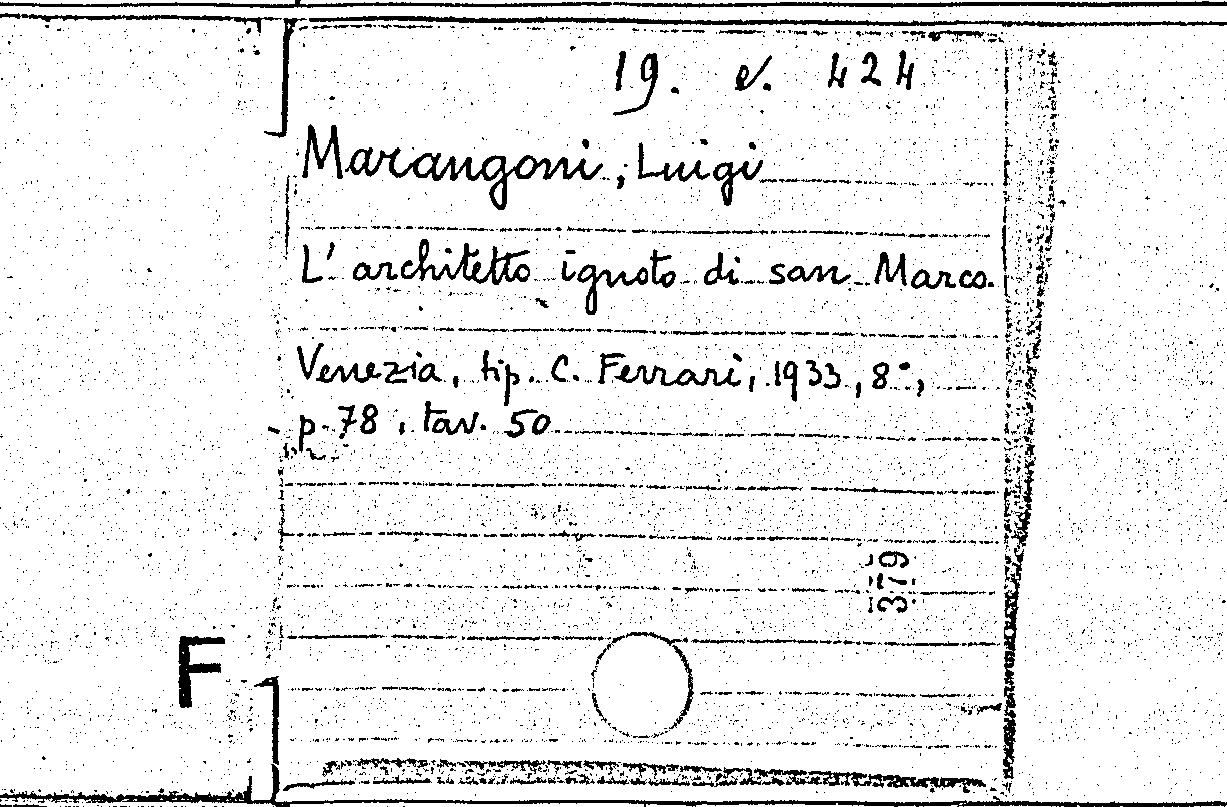 19. e. 424
Marangoni, Luigi
L'architetto ignoto di san Marco.
Venezia, tip. C. Ferrari, 1933, 8°,
p. 78, tav. 50
379
F